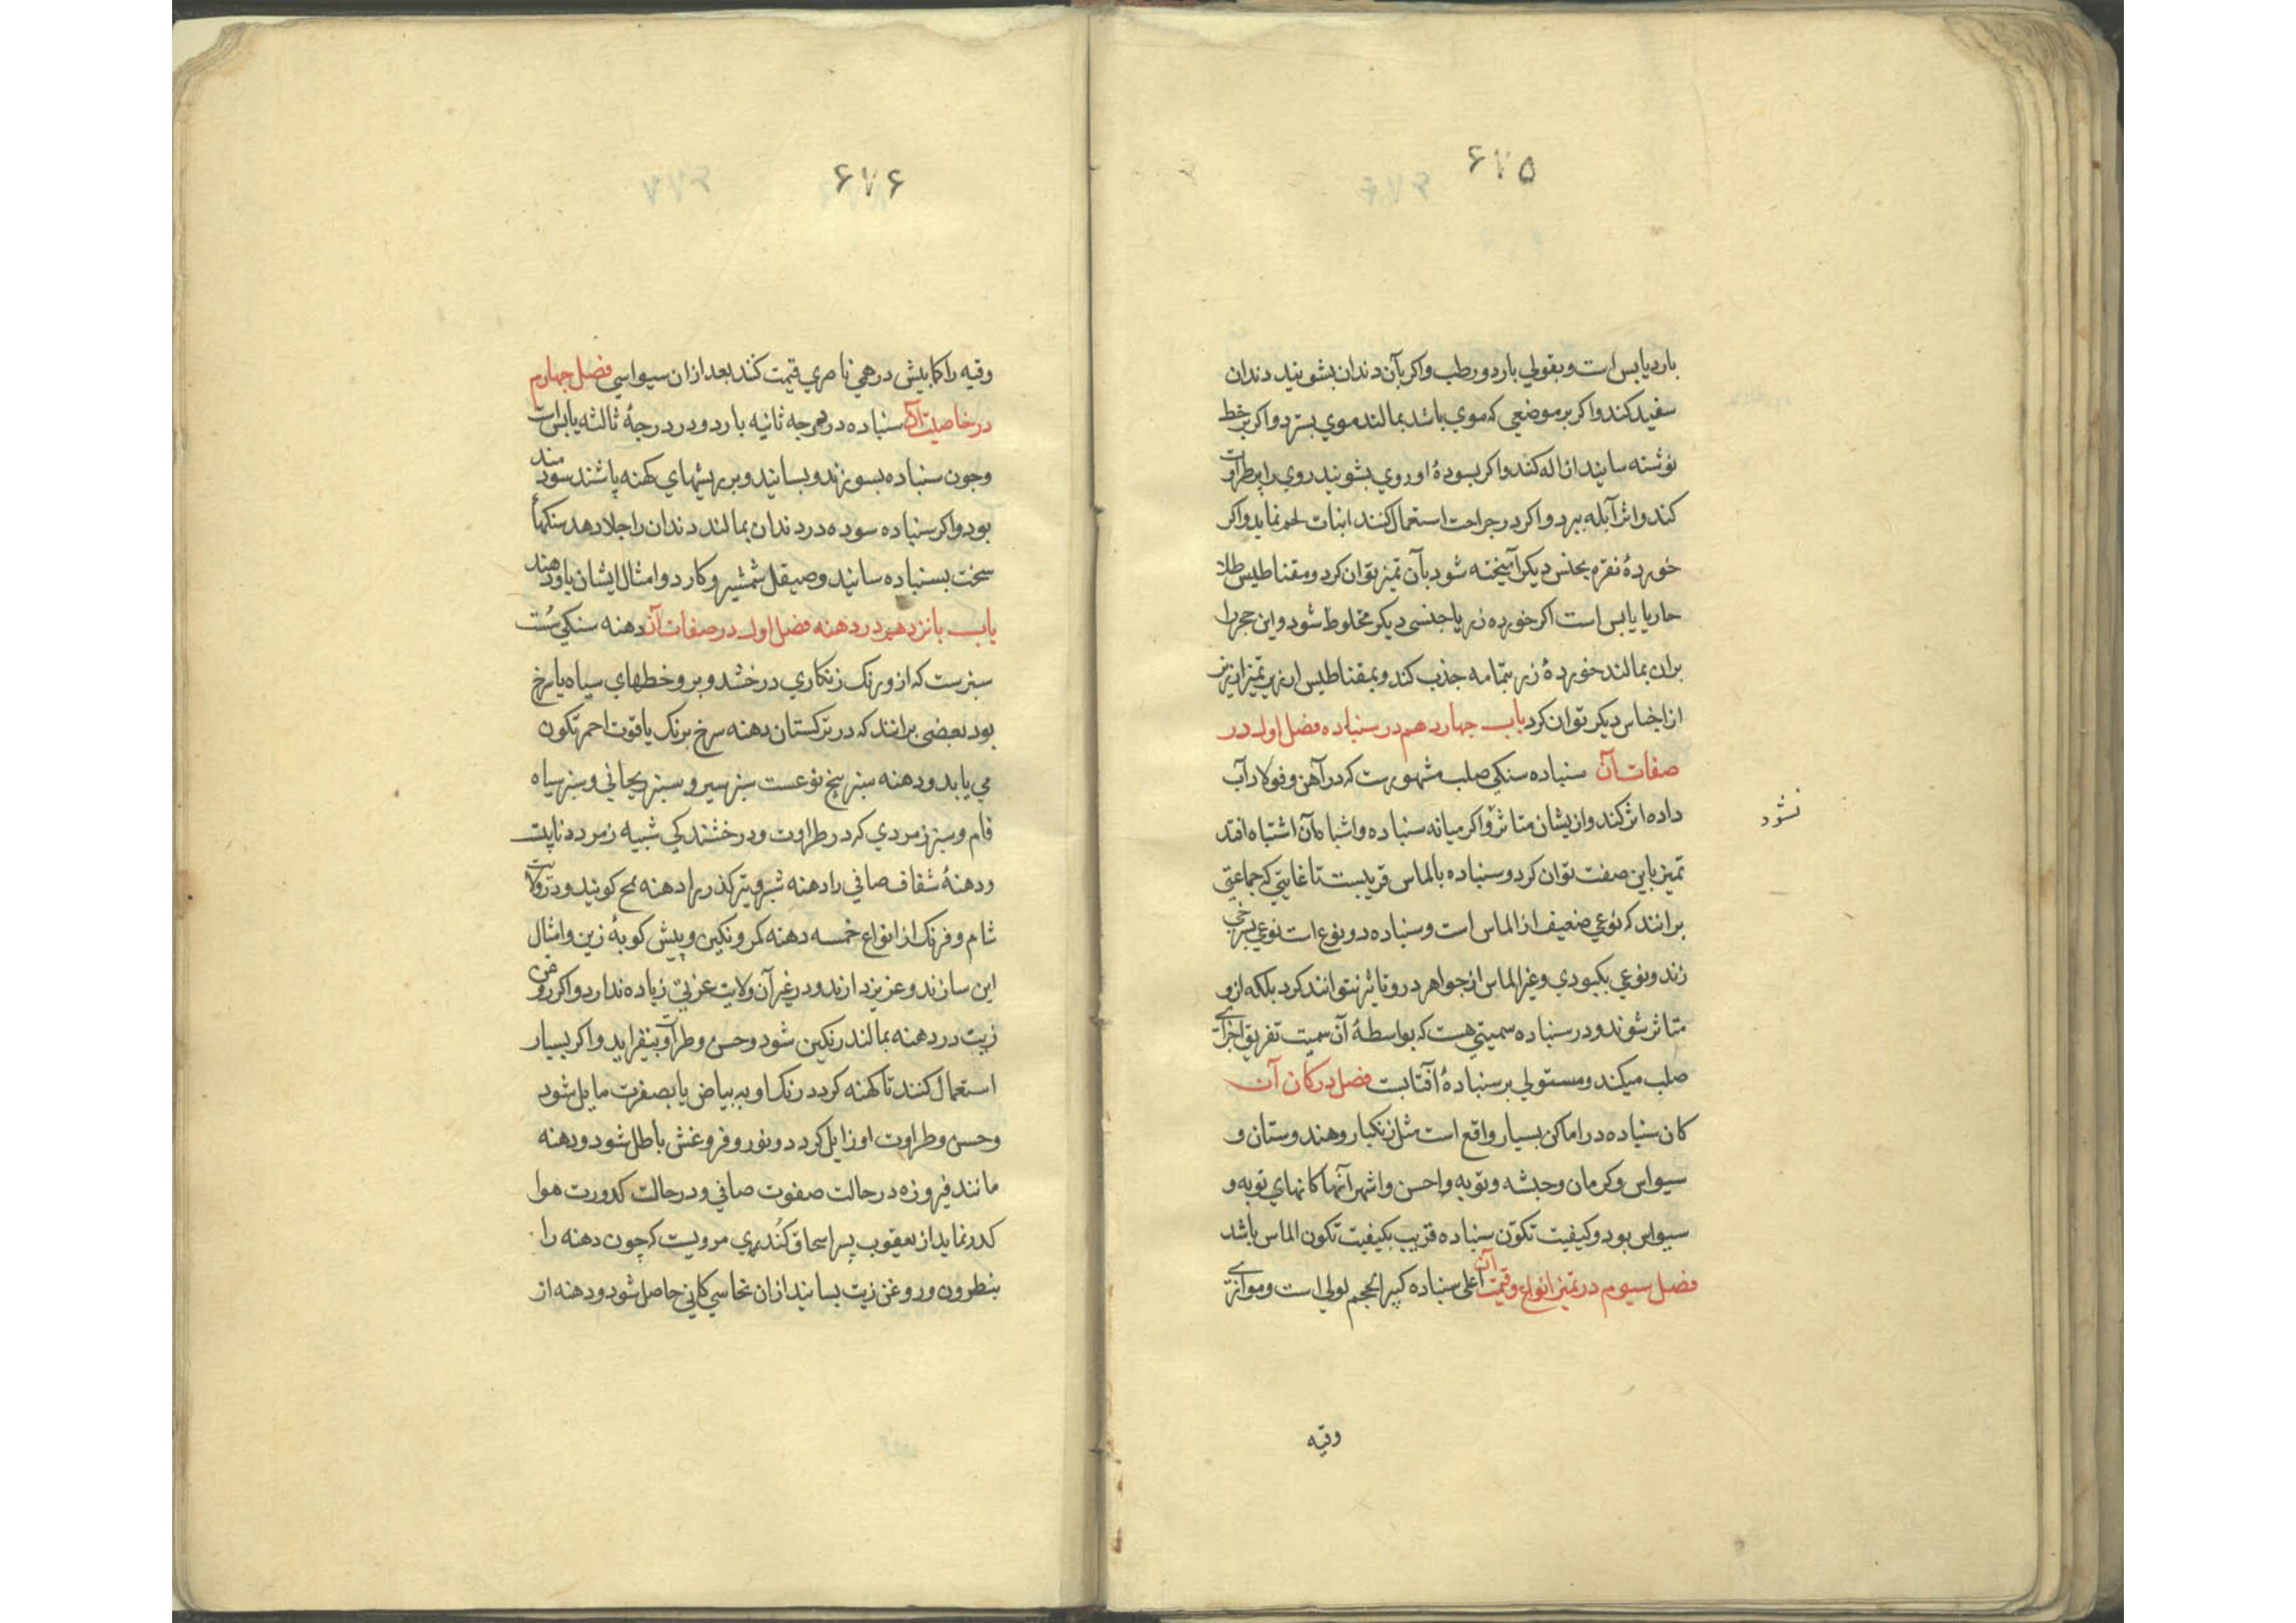 ۶۷۵
بارد یابس است و بقولی بارد و رطب و اکر بآن دندان بشویند دندان
سفید کند و اکر بر موضعی که موی باشد بمالند موی بسترد و اکر بر خط
نوشته سایند ازاله کند و اکر بسودهٔ او روی بشویند روی را بطراوت
کند و اثر آبله ببرد و اکر در جراحت استعمال کنند انبات لحم نماید و اکر
خوردهٔ نقره بجنس دیکر آمیخته شود بآن تمیز توان کرد و مقناطیس طلا
حار یا یابس است اکر خورده زر با جنسی دیکر مخلوط شود و این حجر را
بران بمالند خوردهٔ زر بتمامه جذب کند و بمقناطیس ارزیز تمیز ارزیز
از اجناس دیکر توان کرد باب جهاردهم در سنباده فصل اول در
صفات آن سنباده سنکی صلب مشهورست که در آهن و فولاد آب
داده اثر کند و ازیشان متاثر و اکر میانه سنباده و اشباه آن اشتباه افتد
نشود
تمیز باین صفت توان کرد و سنباده بالماس قریبست تا غایتی که جماعتی
برانند که نوعی ضعیف از الماس است و سنباده دو نوع است نوعی بسرخی
زند و نوعی بکبودی و غیر الماس از جواهر درو تاثیر نتوانند کرد بلکه ازو
متاثر شوند و در سنباده سمیتی هست که بواسطهٔ آن سمیت تفریق اجزای
صلب میکند و مستولی بر سنبادهٔ آفتابت فصل در کان آن
کان سنباده در اماکن بسیار واقع است مثل زنکبار و هندوستان و
سیواس و کرمان و حبشه و نوبه و احسن و اشهر آنها کانهای نوبه و
سیواس بود و کیفیت تکون سنباده قریب بکیفیت تکون الماس باشد
فصل سیوم در تمیز انواع و قیمت آن اعلی سنباده کبیر الحجم لولی است و موازی
وقیه
۶۷۶
وقیه را کمابیش درهمی ناصری قیمت کند بعد از ان سیواسی فصل جهارم
در خاصیت آن سنباده در درجه ثانیه بارد و در درجهٔ ثالثه یابس است
وجون سنباده بسوزند و بسایند و بر ریشهای کهنه پاشند سودمند
بود و اکر سنباده سوده در دندان بمالند دندان را جلا دهد سنکهای
سخت بسنباده سایند و صیقل شمشیر و کارد و امثال ایشان باو دهند
باب بانزدهم در دهنه فصل اول در صفات آن دهنه سنکی سست
سبزست که ازو رنک زنکاری درخشد و برو خطهای سیاه یا سرخ
بود بعضی برانند که در ترکستان دهنه سرخ برنک یاقوت احمر تکون
می یابد و دهنه سبز پنج نوعست سبز سیر و سبز ریحانی و سبز سیاه
فام و سبز زمردی که در طراوت و درخشندکی شبیه زمرد ذبابیت
و دهنهٔ شفاف صافی را دهنه شیرو تیرکذر را دهنه ملح کویند و در ولایت
شام و فرنک از انواع خمسه دهنه کمر و نکین و پیش کوبهٔ زین و امثال
این سازند و عزیز دارند و در غیر آن ولایت عزتی زیاده ندارد و اکر روغن
زیت در دهنه بمالند رنکین شود و حسن و طراوت بیفزاید و اکر بسیار
استعمال کنند تا کهنه کردد رنک او به بیاض یا بصفرت مایل شود
و حسن و طراوت او زایل کردد و نور و فروغش باطل شود و دهنه
مانند فیروزه در حالت صفوت صافی و در حالت کدورت هوا
کدر نماید از یعقوب پسر اسحاق کندری مرویست که چون دهنه را
بنطرون و روغن زیت بسایند از ان نحاسی کانی حاصل شود و دهنه از